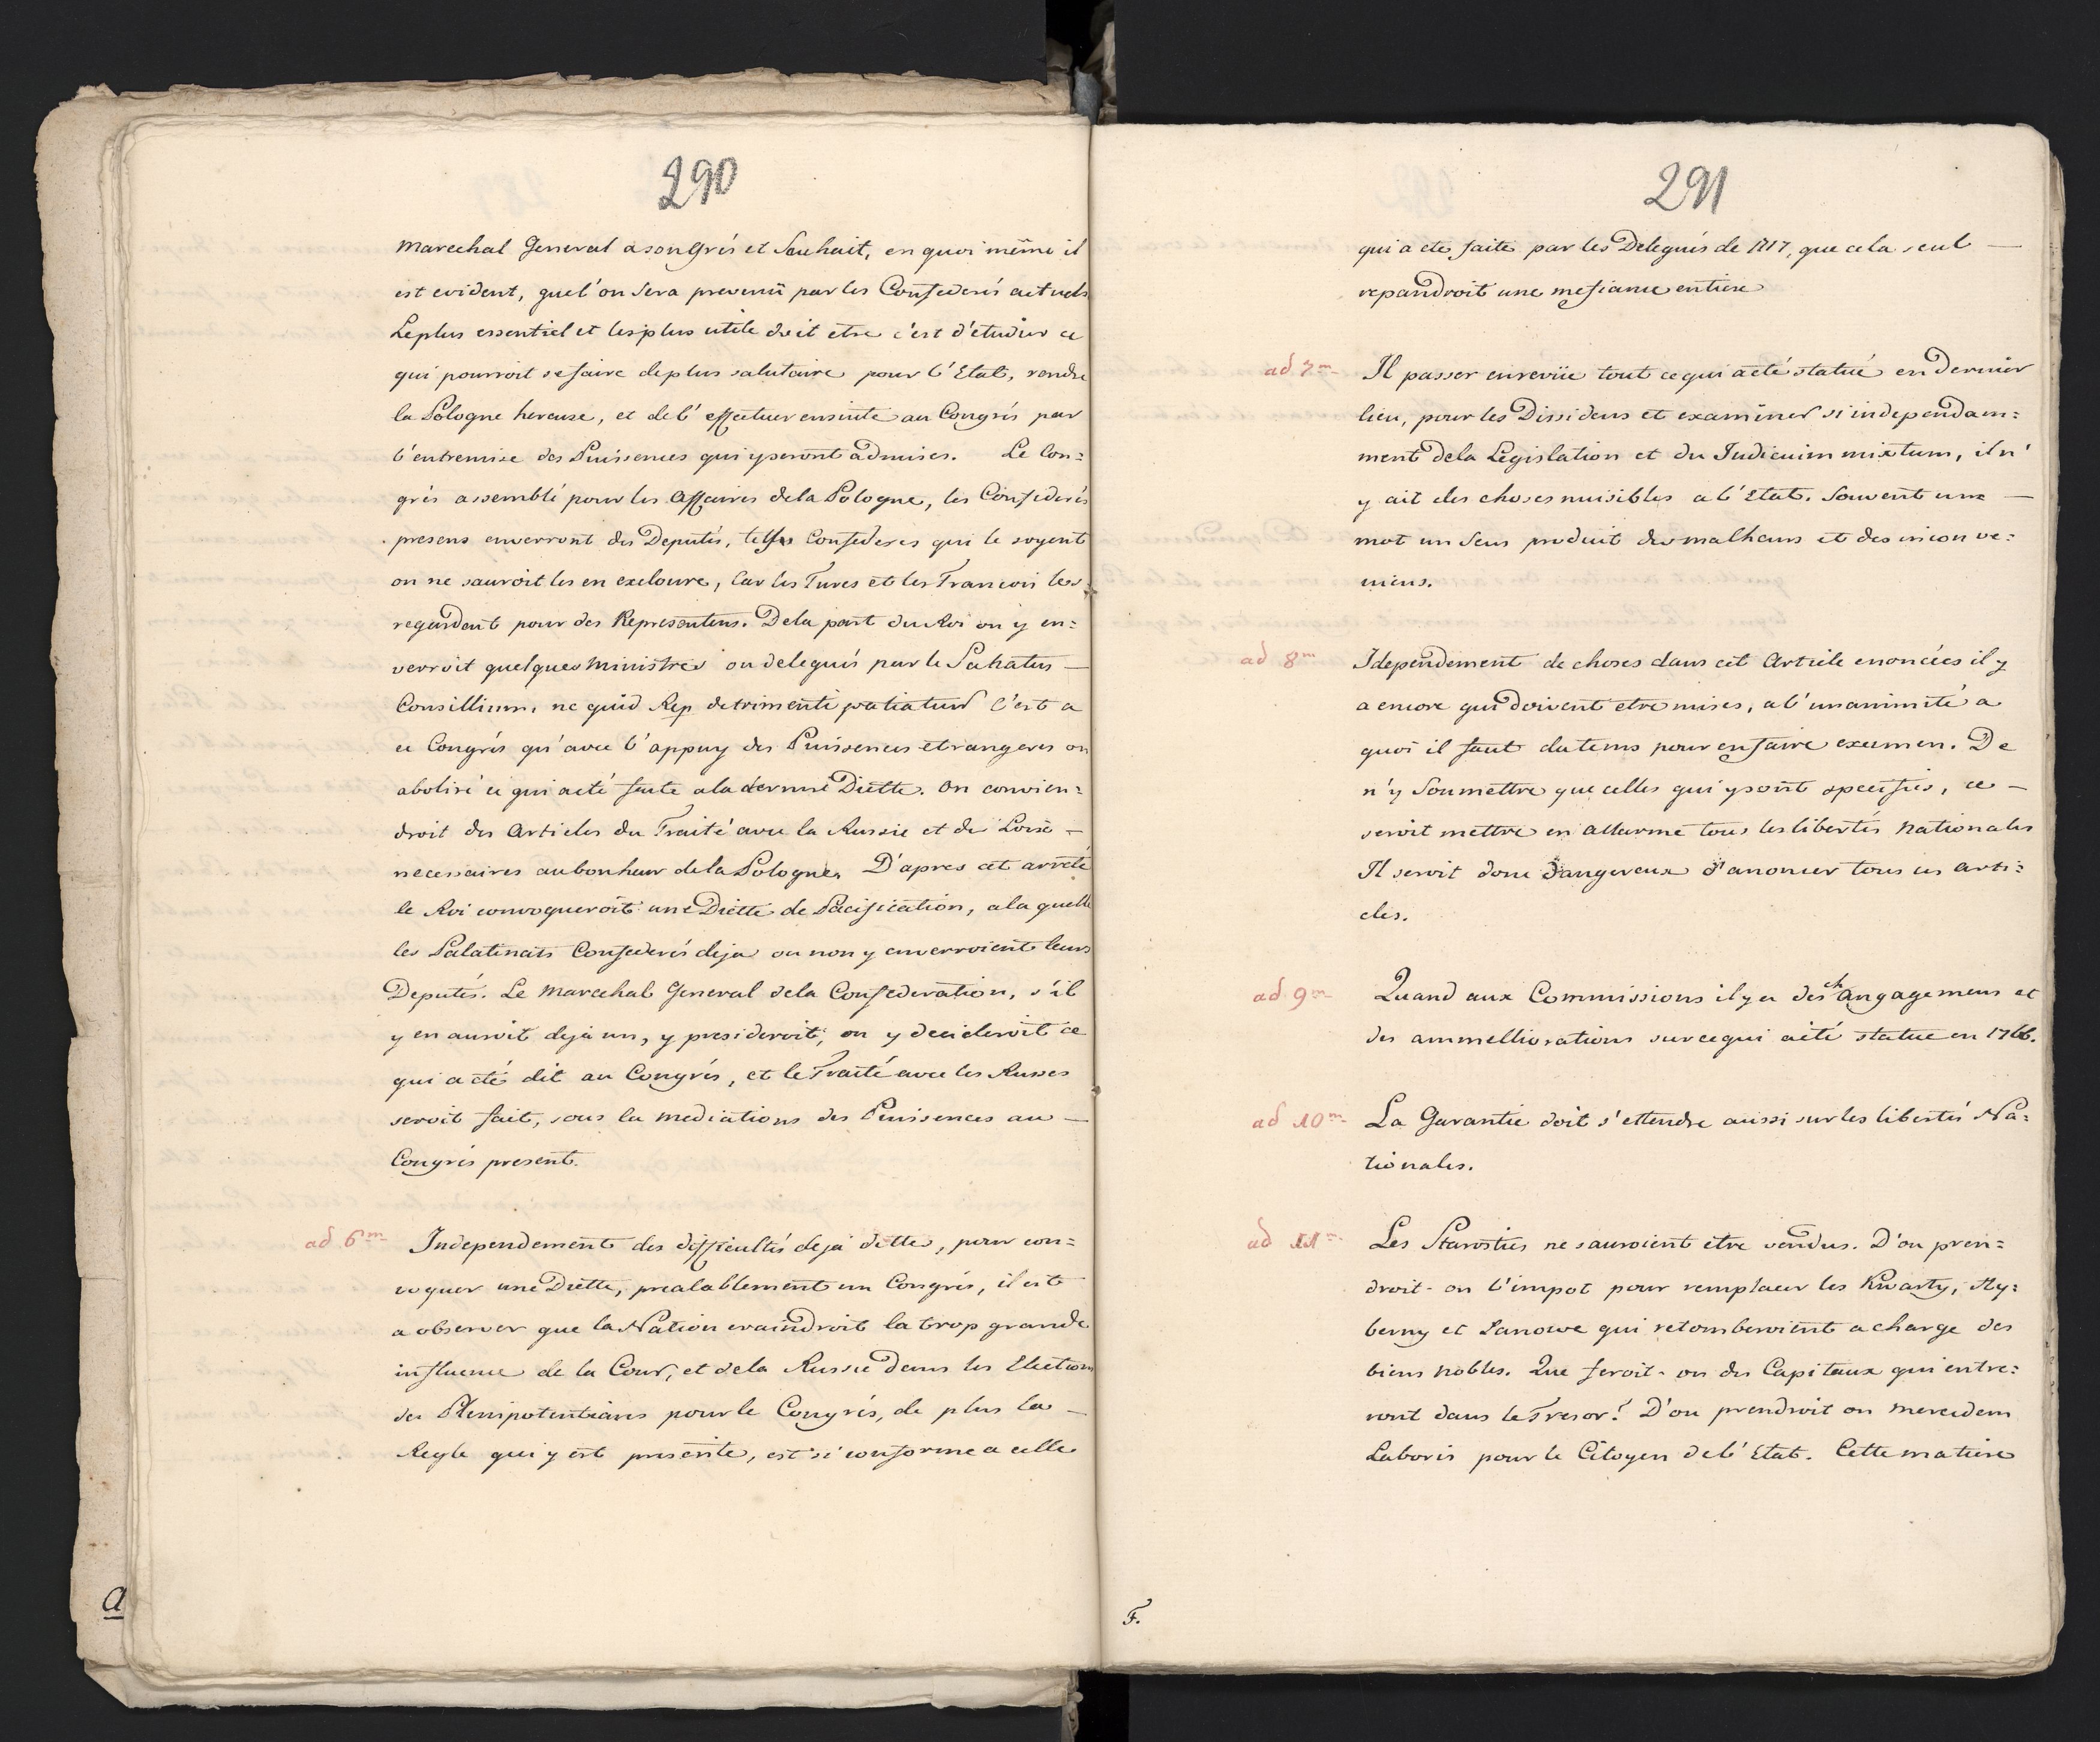 290
Marechal General a son Grés et Souhait, en quoi même il
est evident, que l'on Sera prevenû par les Confederés actuels
Le plus essentiel et les plus utile doit etre c'est d'étudier ce
qui pourroit se faire de plus salutaire pour l'Etat, rendre
la Pologne hereuse, et de l'effectuer ensuite au Congrés par
l'entremise des Puissences qui y seront admises. Le Con=
grés assemblé pour les Affaires de la Pologne, les Confederés
presens enverront des Deputés, Confederes qui le soyent
on ne sauroit les en excloure, Car les Turcs et les Francois les
regardent pour des Representens. De la part du Roi on y en=
verroit quelques Ministres ou delegués par le Senatus —
Consillium, ne quid Rep detrimenti patiatur C'est a
ce Congrés qu'avec l'appuy des Puissences etrangeres on
abolira ce qui a eté faite a la derniere Diette. On convien=
droit des Articles du Traité avec la Russie et de Loix —
necessaires au bonheur de la Pologne. D'apres cet arreté
le Roi convoqueroit une Diette de Pacification, a la quelle
les Palatinats Confederés deja ou non y enverroient leurs
Deputés. Le Marechal General de la Confederation, s'il
y en auroit dejà un, y presideroit, on y decideroit ce
qui a eté dit au Congrés, et le Traité avec les Russes
seroit fait, sous la mediations des Puissences au —
Congrés present.
ad 6m Independement des difficultés deja dittes, pour con=
voquer une Diette, prealablement un Congrés, il est
a observer que la Nation craindroit la trop grande
influence de la Cour, et de la Russie dans les Elections
des Plenipotentiaires pour le Congrés, de plus la —
Regle qui y est prescrite, est si conforme a celle
a
291
qui a ete faite par les Delegués de 1717, que cela seul —
repandroit une mefiance entiere
ad 7m Il passer en revüe tout ce qui a eté statué en dernier
lieu, pour les Dissidens et examiner si independam=
ment de la Legislation et du Iudicium mixtum, il n'
y ait des choses nuisibles a l'Etat. Souvent une —
mot un Sens produit des malheurs et des inconve=
niens.
ad 8m Idependement de choses dans cet Article enoncées il y
a encore qui doivent etre mises, a l'unanimité a
quoi il faut du tems pour en faire examen. De
n'y Soumettre que celles qui y sont specifiés, ce —
seroit mettre en allarme tous les libertés Nationales
Il seroit donc dangereux d'anoncer tous ces arti=
cles.
ad 9m Quand aux Commissions il y a des changagemens et
des ammelliorations sur ce qui a eté statue en 1766.
ad 10m La Garantie doit s'ettendre aussi sur les libertés Na=
tionales.
ad 11m Les Starosties ne sauroient etre vendus. D'ou pren=
droit-on l'impot pour remplacer les Kwarty, Hy=
berny et Lanowe qui retomberoient a charge des
biens nobles. Que feroit-on des Capitaux qui entre=
ront dans le Tresor? D'ou prendroit on mercedem
Laboris pour le Citoyen de l'Etat. Cette matiere
F.